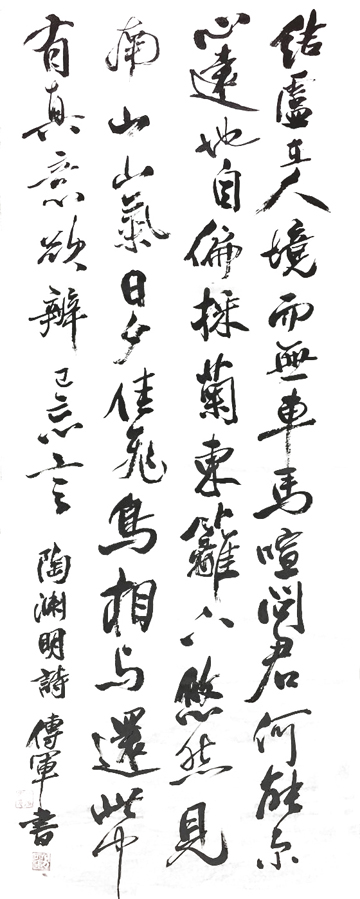 結廬在人境而無車馬喧問君何能尔
心遠地自偏採菊東籬下悠然見
南山山氣日夕佳飛鳥相与還此中
有真意欲辨已忘言 陶渊明詩 傳軍書